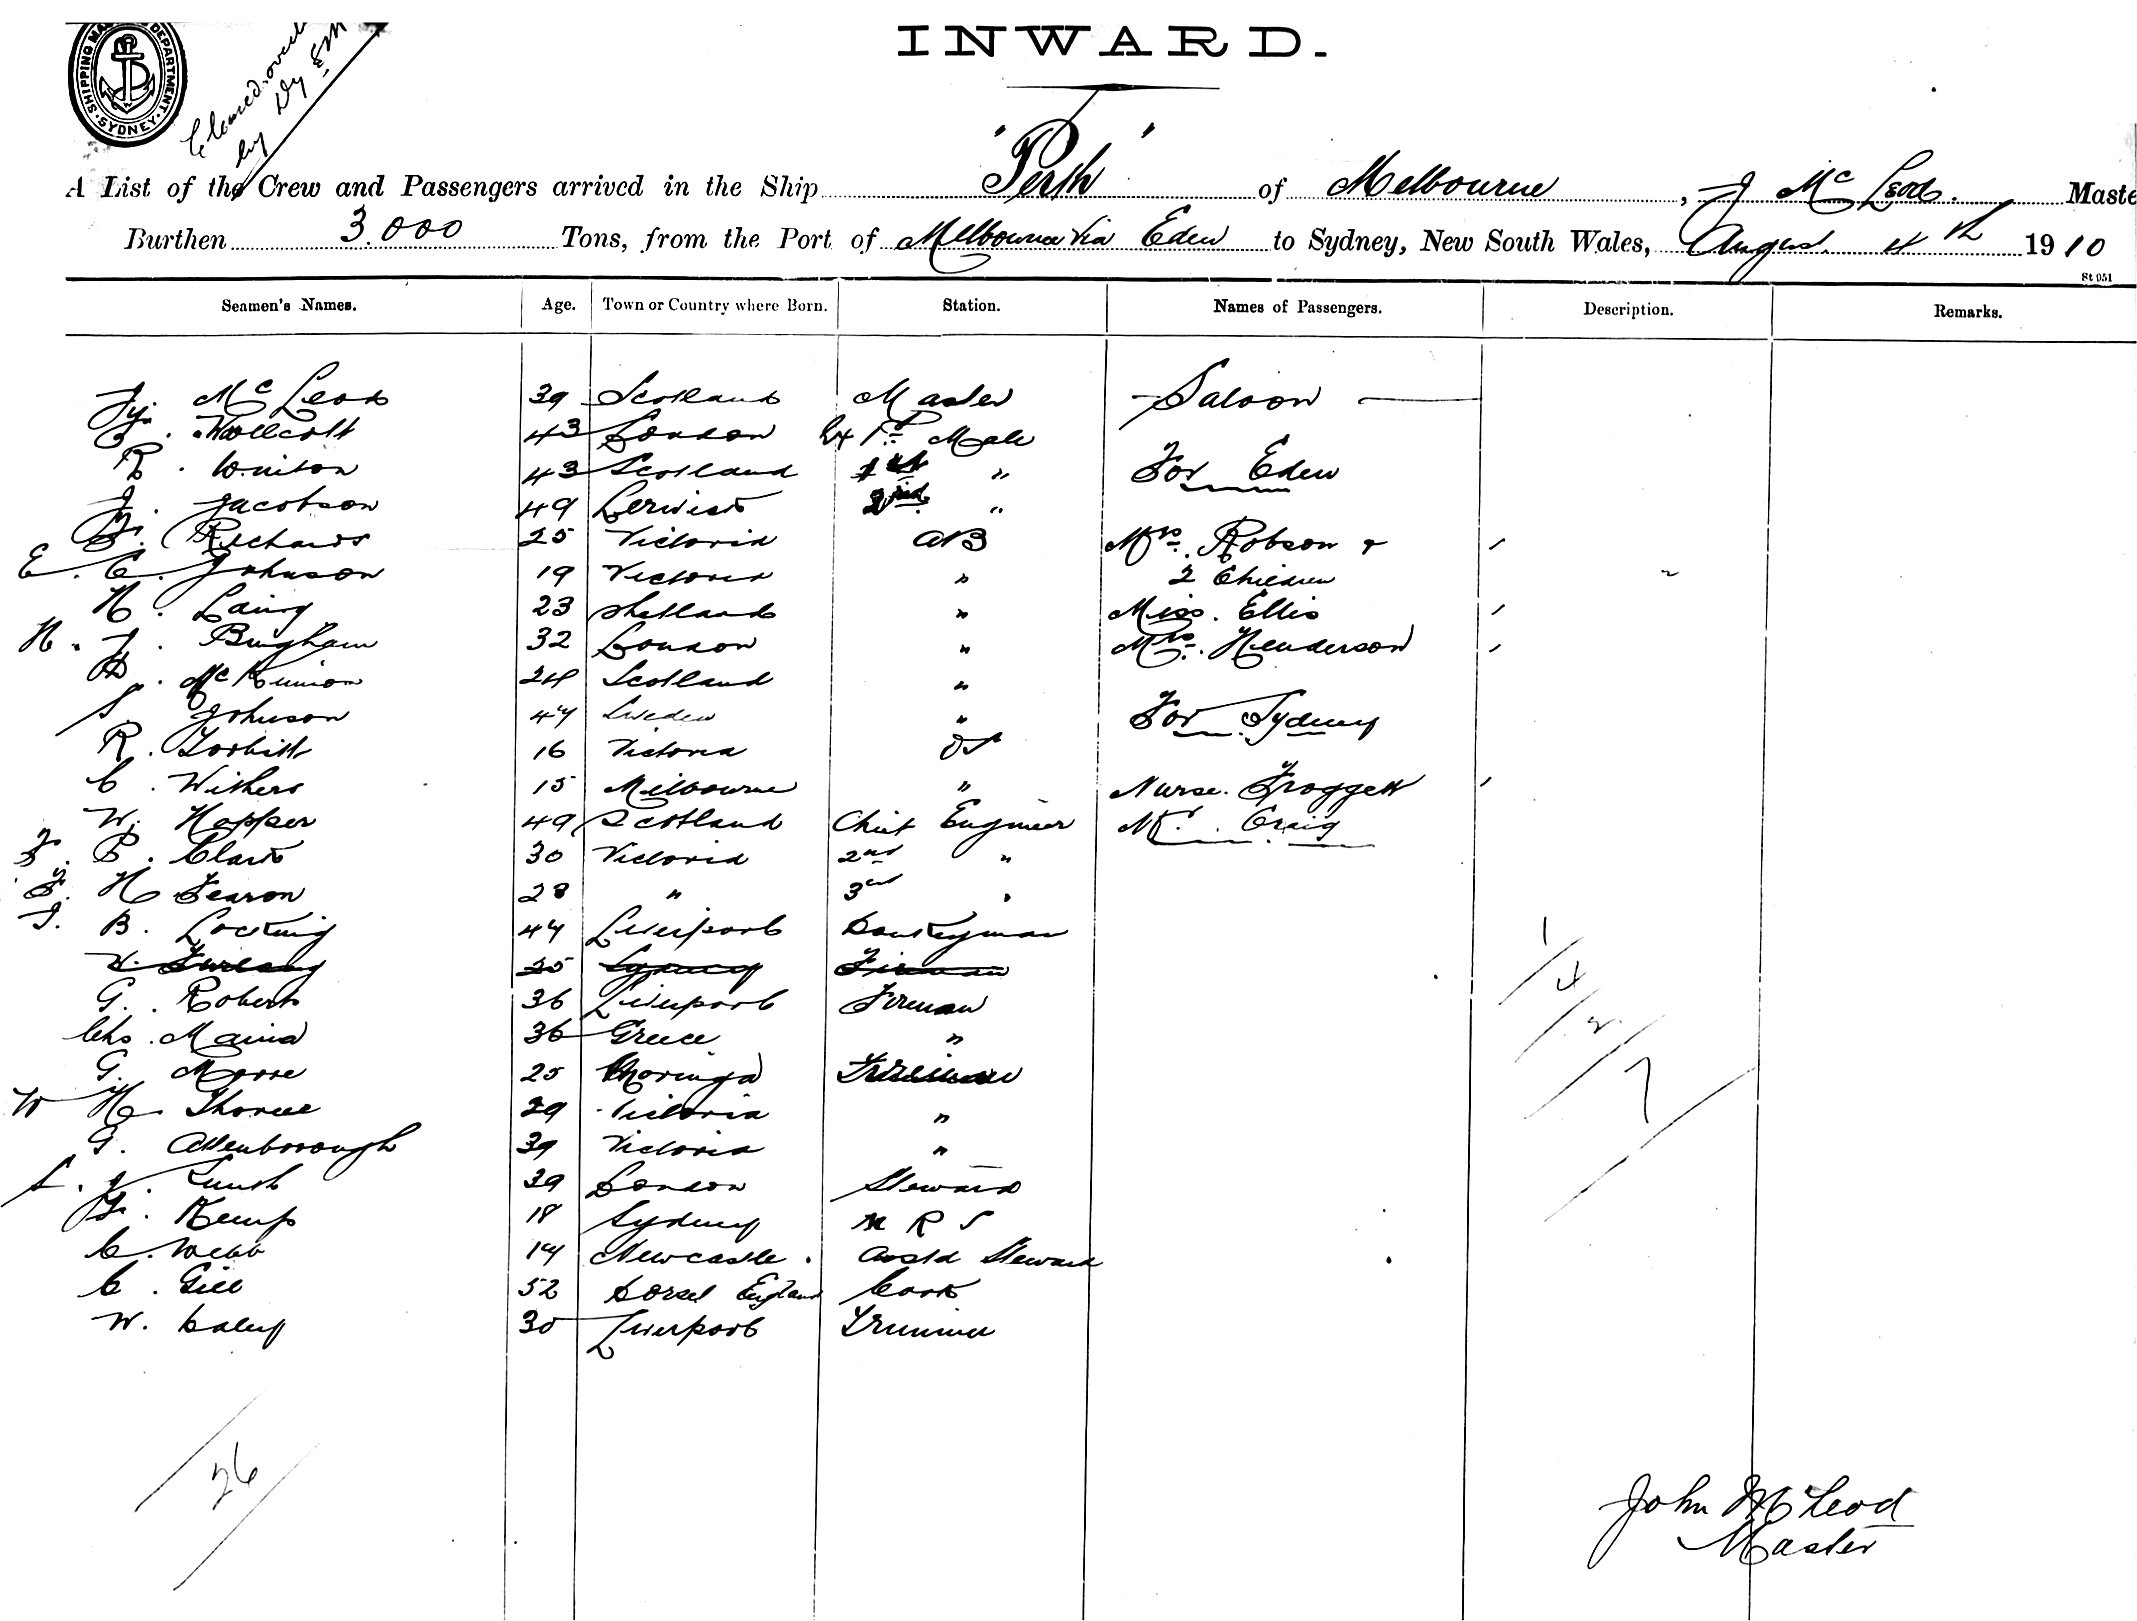 INWARD.
SHIPPING MASTER'S DEPARTMENT SYDNEY
by
A List of the Crew and Passengers arrived in the Ship "Perth" of Melbourne, J McLeod. Maste
Burthen 3.000 Tons, from the Port of Melbourne via Eden to Sydney, New South Wales, August 4th 1910
St 951
Seamen's Names. Age. Town or Country where Born. Station. Names of Passengers. Description. Remarks.
J. McLeod 39 Scotland Master Saloon
Wollcott 43 London Ex 1st Mate
R. 43 Scotland 1st " For Eden
J. Jacobson 49 Lerwick 2nd "
F. Richards 25 Victoria AB Mrs. Robson &
E. C. Johnson 19 Victoria " 2 Children
H. Laing 23 Shetland " Miss. Ellis
H. J. Bingham 32 London " Mrs. Henderson
D. McKinnon 24 Scotland "
S. Johnson 47 Sweden " For Sydney
R. 16 Victoria OS
C. Withers 15 Melbourne " Nurse. Froggett
W. Hopper 49 Scotland Chief Engineer Mr. Craig
F. P. Clark 30 Victoria 2nd "
F. H Fearon 28 " 3rd "
J. B. Locking 44 Liverpool Donkeyman
W. Furlong 25 Sydney Fireman
G. Roberts 36 Liverpool Fireman
Chs. Maina 36 Greece "
G. Moore 25 Trimmer
W H. Thorne 29 Victoria "
G. Attenborough 39 Victoria "
S. J. Lunt 39 London Steward
F. Kemp 18 Sydney M R S
C. Webb 19 Newcastle. Asstd Steward
C. Gill 52 Dorset England Cook
W. Daley 30 Liverpool Trimmer
1
4
2
7
26
John McLeod
Master